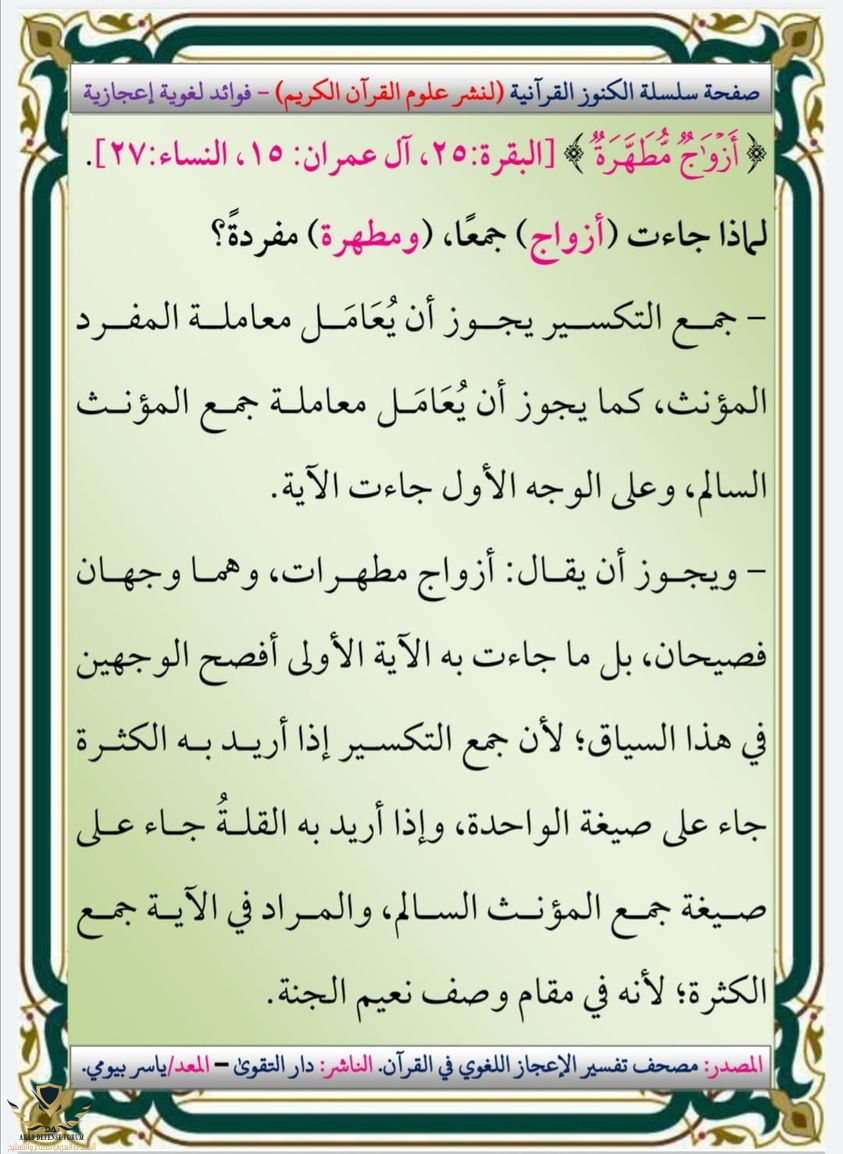 صفحة سلسلة الكنوز القرآنية (لنشر علوم القرآن الكريم) – فوائد لغوية إعجازية
﴿ أَزۡوَٰجٞ مُّطَهَّرَةٞ ﴾ [البقرة:٢٥، آل عمران: ١٥، النساء:٢٧].
لماذا جاءت (أزواج) جمعًا، (ومطهرة) مفردةً؟
– جمع التكسير يجوز أن يُعَامَل معاملة المفرد
المؤنث، كما يجوز أن يُعَامَل معاملة جمع المؤنث
السالم، وعلى الوجه الأول جاءت الآية.
– ويجوز أن يقال: أزواج مطهرات، وهما وجهان
فصيحان، بل ما جاءت به الآية الأولى أفصح الوجهين
في هذا السياق؛ لأن جمع التكسير إذا أريد به الكثرة
جاء على صيغة الواحدة، وإذا أريد به القلةُ جاء على
صيغة جمع المؤنث السالم، والمراد في الآية جمع
الكثرة؛ لأنه في مقام وصف نعيم الجنة.
المصدر: مصحف تفسير الإعجاز اللغوي في القرآن. الناشر: دار التقوىٰ – المعد/ياسر بيومي.
DA
ARAB DEFENSE FORUM